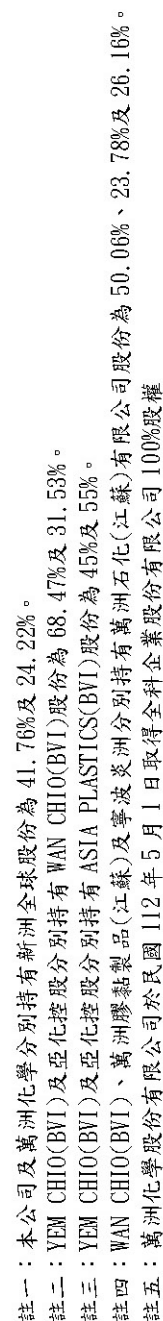 註一：本公司及萬洲化學分別持有新洲全球股份為 41.76%及 24.22%。
註二：YEM CHIO(BVI)及亞化控股分別持有 WAN CHIO(BVI)股份為 68.47%及 31.53%。
註三：YEM CHIO(BVI)及亞化控股分別持有 ASIA PLASTICS(BVI)股份為 45%及 55%。
註四：WAN CHIO(BVI)、萬洲膠黏製品(江蘇)及寧波炎洲分別持有萬洲石化(江蘇)有限公司股份為 50.06%、23.78%及 26.16%。
註五：萬洲化學股份有限公司於民國 112 年 5 月 1 日取得全科企業股份有限公司 100%股權